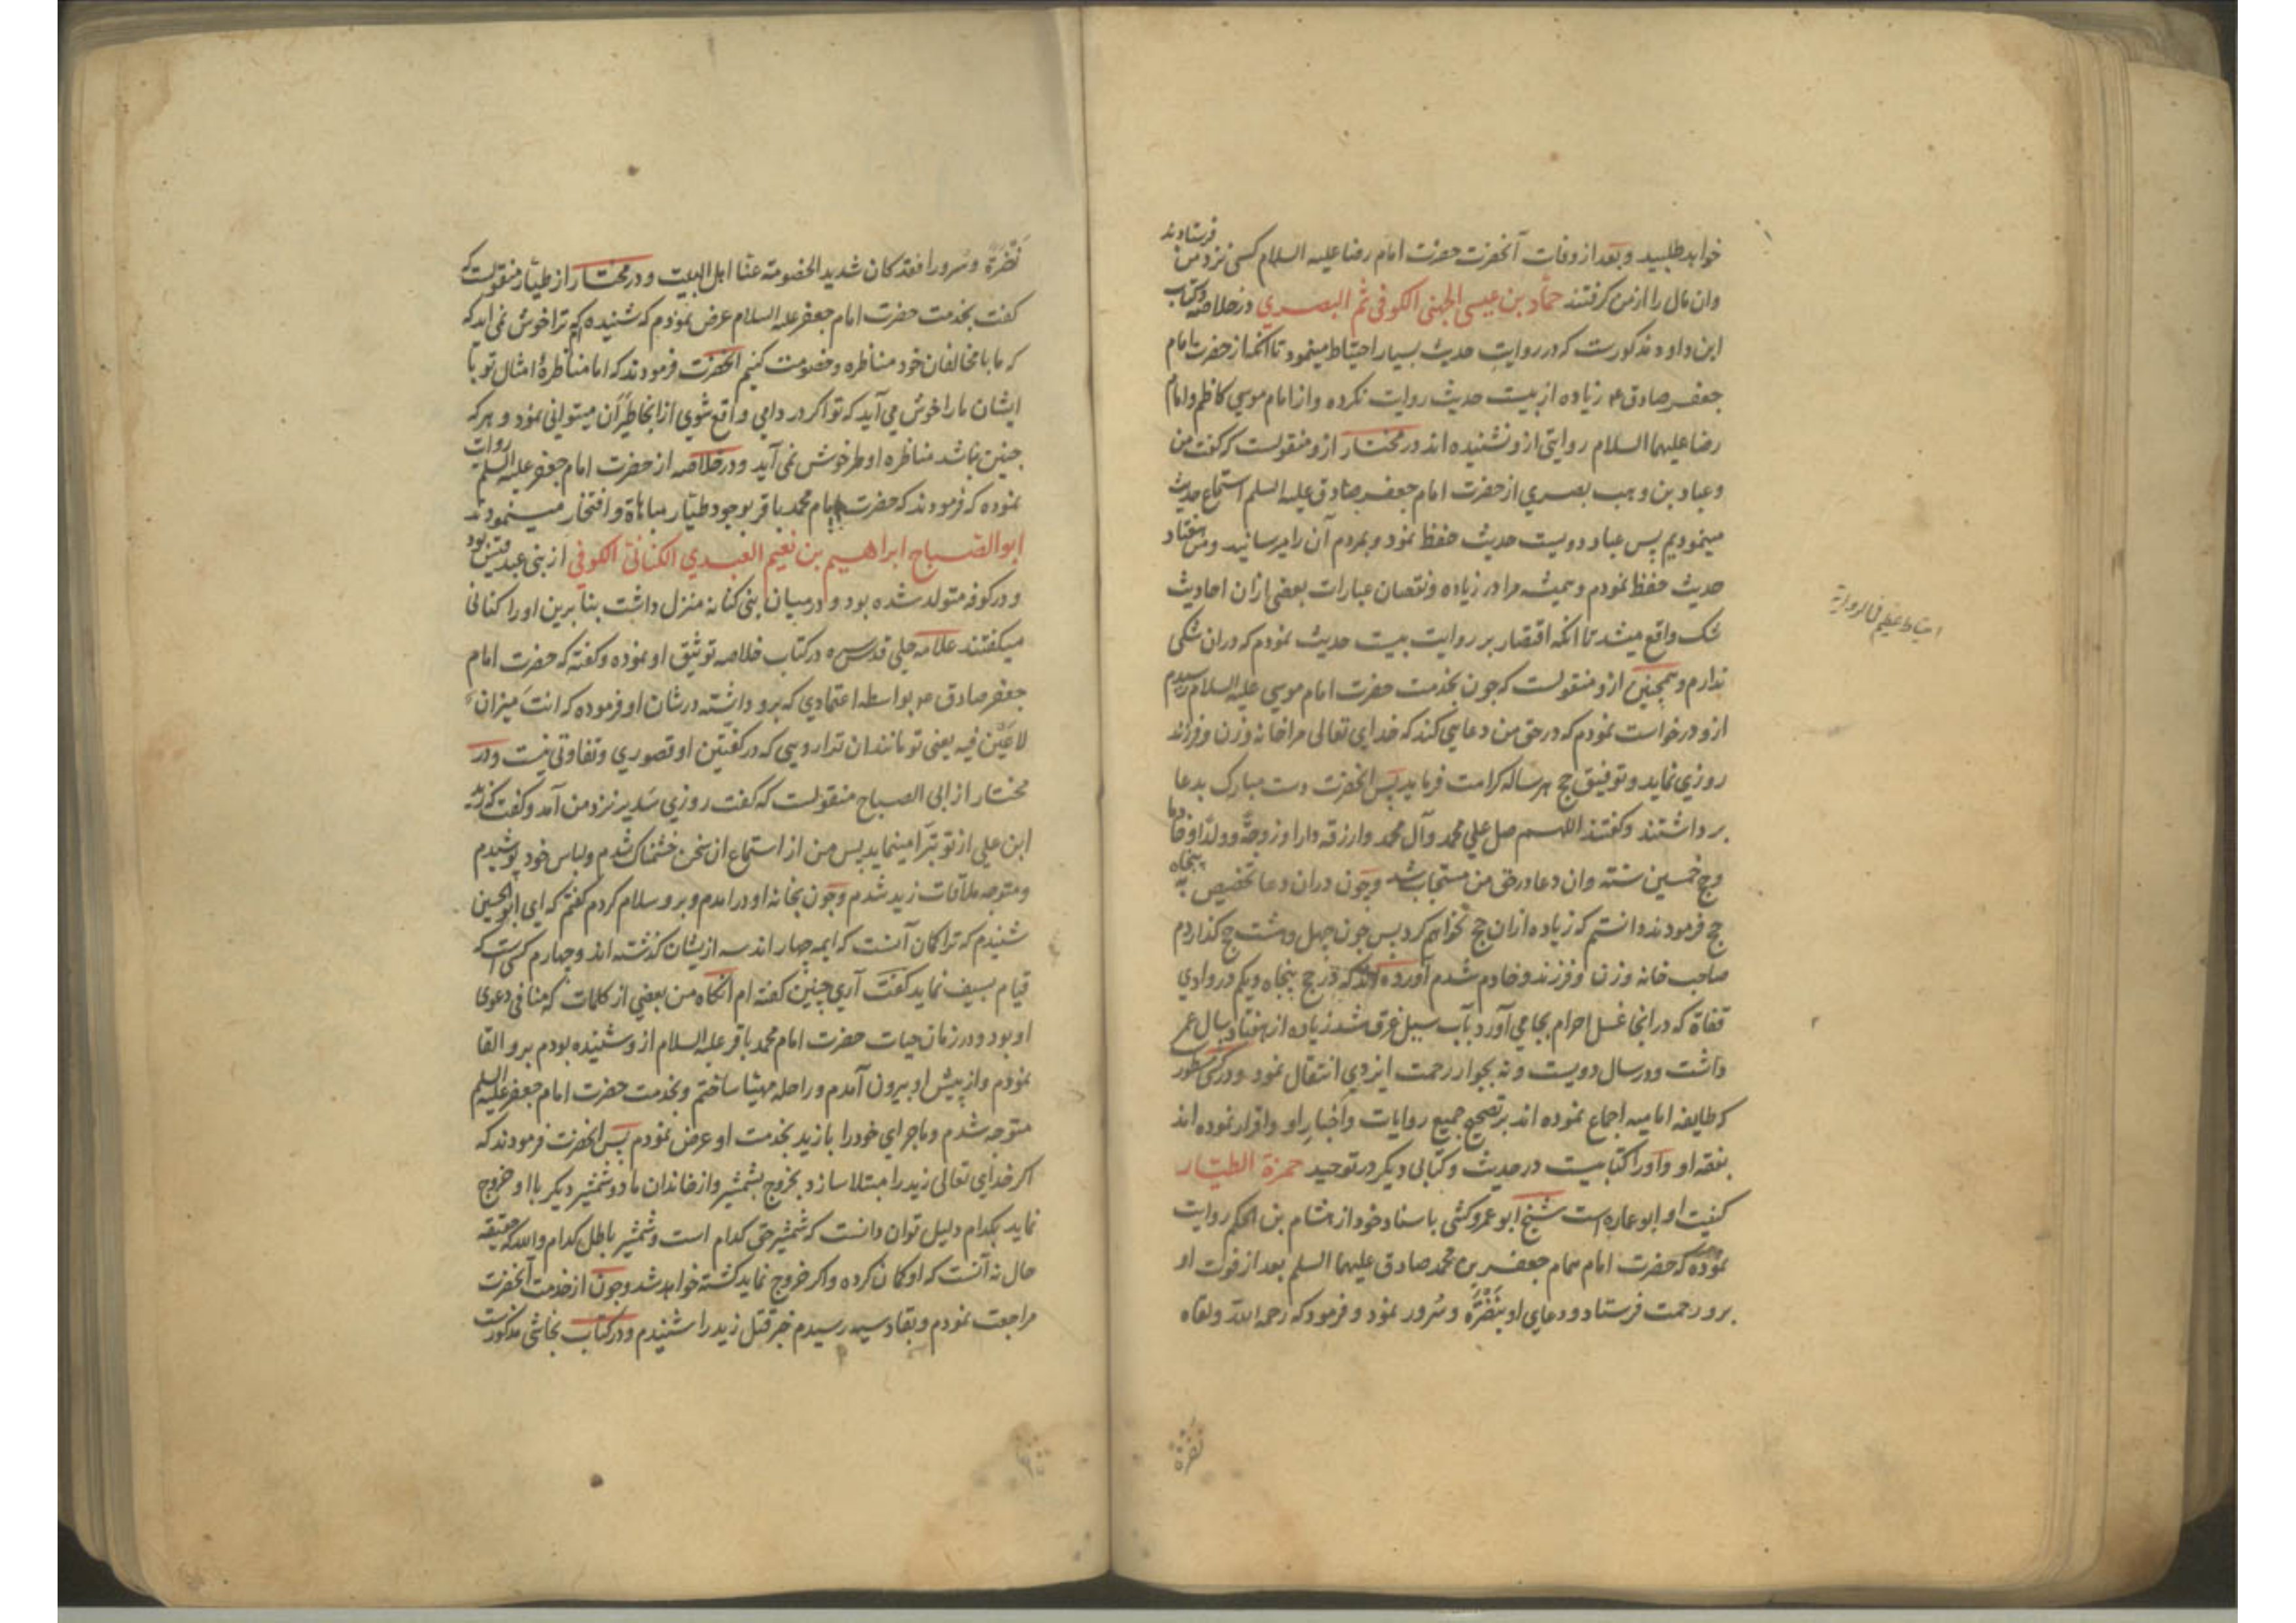 خواهد طلبید و بعد از وفات آنحضرت حضرت امام رضا علیه السلام کسی نزد من فرستادند
وان مال را از من کرفتند حماد بن عیسی الجهنی الکوفی ثم البصری در خلاصه وکتاب
ابن داود مذکورست که در روایت حدیث بسیار احتیاط مینمود تا آنکه از حضرت امام
جعفر صادق ع زیاده از بیست حدیث روایت نکرده و از امام موسی کاظم و امام
رضا علیهما السلام روایتی ازو نشنیده اند در مختار ازو منقولست که کفت من
وعباد بن وهب بصری از حضرت امام جعفر صادق علیه السلم استماع حدیث
مینمودیم پس عباد دویست حدیث حفظ نمود و بمردم آن را میرسانید ومن هفتاد
حدیث حفظ نمودم و همیشه مرا در زیاده ونقصان عبارات بعضی ازان احادیث
شک واقع میشد تا آنکه اقتصار بر روایت بیست حدیث نمودم که دران شکی
ندارم و همچنین ازو منقولست که چون بخدمت حضرت امام موسی علیه السلام رسیدم
ازو درخواست نمودم که در حق من دعایی کند که خدای تعالی مرا خانه وزن وفرزند
روزی نماید وتوفیق حج هر ساله کرامت فرماید پس انحضرت دست مبارک بدعا
برداشتند وکفتند اللهم صل علی محمد وآل محمد وارزقه دارا وزوجة وولدا وخادما
وحج خمسین سنة وان دعا در حق من مستجاب شد وچون دران دعا تخصیص به پنجاه
حج فرمودند دانستم که زیاده ازان حج نخواهم کرد پس چون چهل وهشت حج کذاردم
صاحب خانه وزن وفرزند وخادم شدم آورده اند که در حج پنجاه ویکم در وادی
قفاة که در انجا غسل احرام بجا می آورد بآب سیل غرق شد زیاده از هفتاد سال عمر
داشت ودر سال دویست ونه بجوار رحمت ایزدی انتقال نمود ودر کشی مسطور
که طایفه امامیه اجماع نموده اند بر تصحیح جمیع روایات واخبار او واقرار نموده اند
بفقه او واورا کتابیست در حدیث وکتابی دیکر در توحید حمزة الطیار
کنیت او ابو عماره است شیخ ابو عمرو کشی باسناد خود از هشام بن الحکم روایت
نموده که حضرت امام همام جعفر بن محمد صادق علیهما السلم بعد از فوت او
برو رحمت فرستاد ودعای او بنضرة وسرور نمود و فرمود که رحمه الله ولقاه
نضرة
احتیاط عظیم فی الروایة
نضرة وسرورا فقد کان شدید الخصومة عنا اهل البیت ودر مختار از طیار منقولست که
کفت بخدمت حضرت امام جعفر علیه السلام عرض نمودم که شنیده ام که ترا خوش نمی اید که
که ما با مخالفان خود مناظره وخصومت کنیم انحضرت فرمودند که اما مناظرۀ امثال تو با
ایشان مارا خوش می آید که تو اکر در دامی واقع شوی از انجا طیران میتوانی نمود و هر که
چنین نباشد مناظره او مارا خوش نمی آید ودر خلاصه از حضرت امام جعفر علیه السلم روایت
نموده که فرمودند که حضرت امام محمد باقر بوجود طیار مباهاة وافتخار مینمودند
ابو الصباح ابراهیم بن نعیم العبدی الکنانی الکوفی از بنی عبد قیس بود
ودر کوفه متولد شده بود ودر میان بنی کنانه منزل داشت بنا برین اورا کنانی
میکفتند علامه حلی قدس سره در کتاب خلاصه توثیق او نموده وکفته که حضرت امام
جعفر صادق ع بواسطه اعتمادی که برو داشته در شان او فرموده که انت میزان
لا عین فیه یعنی تو مانند ان ترازویی که در کفتین او قصوری وتفاوتی نیست ودر
مختار از ابی الصباح منقولست که کفت روزی سدیر نزد من آمد وکفت که زید
ابن علی از تو تبرا مینماید پس من از استماع ان سخن خشمناک شدم ولباس خود پوشیدم
ومتوجه ملاقات زید شدم وچون بخانه او درامدم وبرو سلام کردم کفتم که ای ابو الحسین
شنیدم که ترا کمان آنست که ایمه چهار اند سه ازیشان کذشته اند وچهارم کسی است که
قیام بسیف نماید کفت آری چنین کفته ام انکاه من بعضی از کلمات که منافی دعوی
او بود ودر زمان حیات حضرت امام محمد باقر علیه السلام ازو شنیده بودم برو القا
نمودم واز پیش او بیرون آمدم وراحله مهیا ساختم وبخدمت حضرت امام جعفر علیه السلم
متوجه شدم وماجرای خودرا با زید بخدمت او عرض نمودم پس انحضرت فرمودند که
اکر خدای تعالی زید را مبتلا سازد بخروج بشمشیر واز خاندان ما دو شمشیر دیکر با او خروج
نماید بکدام دلیل توان دانست که شمشیر حق کدام است وشمشیر باطل کدام والله که حقیقه
حال نه آنست که او کمان کرده واکر خروج نماید کشته خواهد شد وچون از خدمت آنحضرت
مراجعت نمودم وبقادسیه رسیدم خبر قتل زید را شنیدم ودر کتاب نجاشی مذکورست